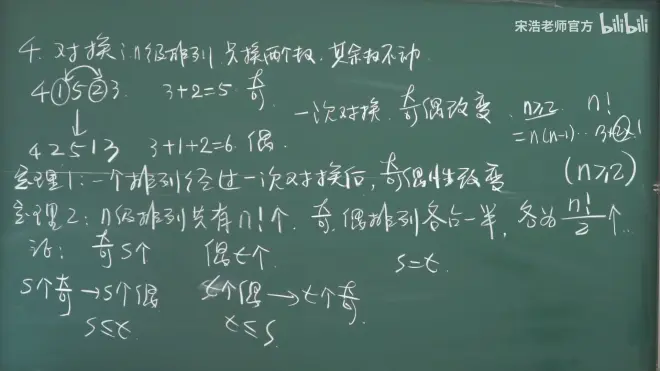 宋浩老师官方 bilibili
4. 对换: n级排列, 只换两个数, 其余数不动.
4 1 5 2 3. 3+2=5. 奇
一次对换, 奇偶改变. n≥2. n!
=n(n-1)…3·2·1
4 2 5 1 3 3+1+2=6 偶.
(n≥2)
定理1: 一个排列经过一次对换后, 奇偶性改变
定理2: n级排列共有n!个, 奇、偶排列各占一半, 各为 n!/2 个.
证: 奇 s个 偶 t个. s=t.
s个奇 → s个偶 t个偶 → t个奇.
s≤t. t≤s.